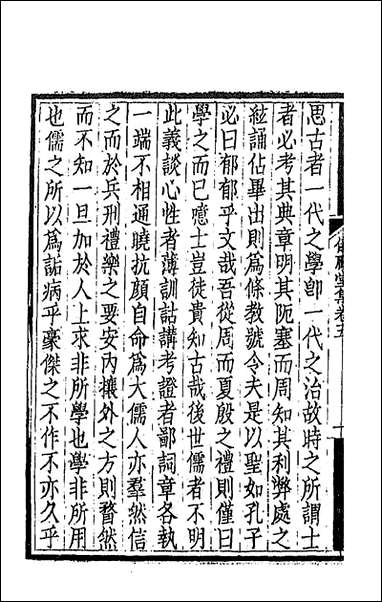 思古者一代之學卽一代之治故時之所謂士
者必考其典章明其阨塞而周知其利弊處之
絃誦佔畢出則爲條教號令夫是以聖如孔子
必曰郁郁乎文哉吾從周而夏殷之禮則僅曰
學之而已噫士豈徒貴知古哉後世儒者不明
此義談心性者薄訓詁講考證者鄙詞章各執
一端不相通曉抗顔自命爲大儒人亦羣然信
之而於兵刑禮樂之要安內攘外之方則瞀然
而不知一旦加於人上求非所學也學非所用
也儒之所以爲詬病乎豪傑之不作不亦久乎
堂集卷五